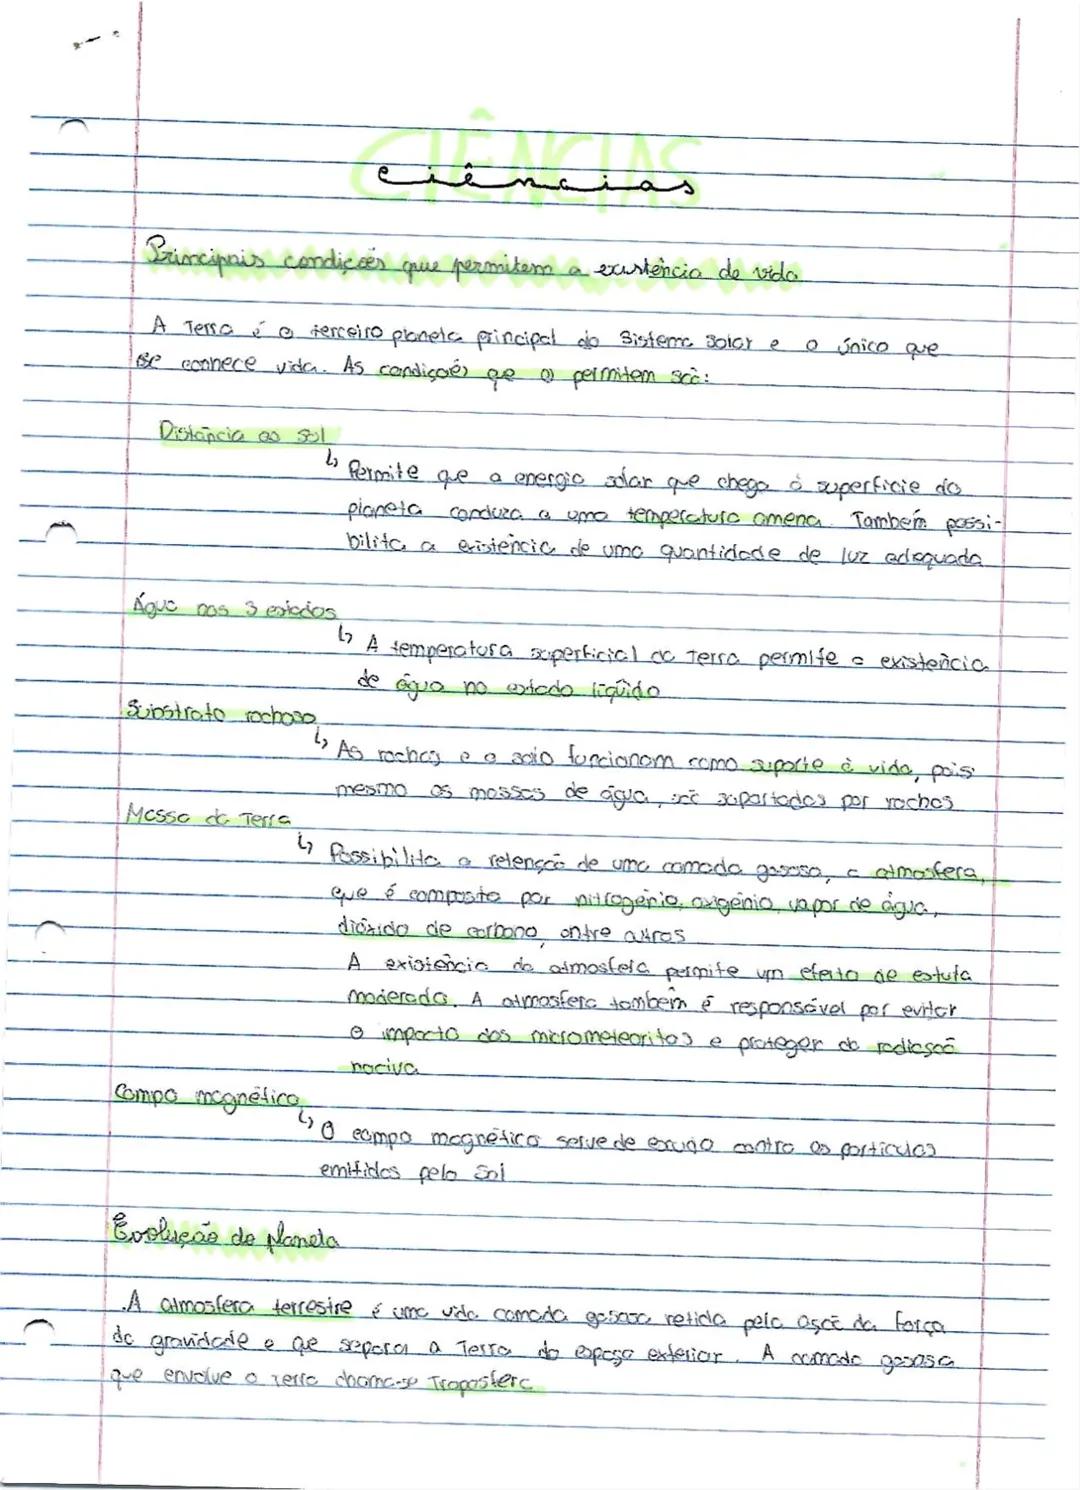 CIÊNCIAS
ciências
Principais condições que permitem a existência de vida
A Terra é o terceiro planeta principal do Sistema Solar e o único que
se conhece vida. As condições que o permitem são:
Distância ao sol
↳ Permite que a energia solar que chega à superfície do
planeta conduza a uma temperatura amena. Também possi-
bilita a existência de uma quantidade de luz adequada
Água nos 3 estados
↳ A temperatura superficial da Terra permite a existência
de água no estado líquido
Substrato rochoso
↳ As rochas e o solo funcionam como suporte à vida, pois
mesmo as massas de água, são suportadas por rochas
Massa da Terra
↳ Possibilita a retenção de uma camada gasosa, a atmosfera,
que é composta por nitrogénio, oxigénio, vapor de água,
dióxido de carbono, entre outros
A existência da atmosfera permite um efeito de estufa
moderada. A atmosfera também é responsável por evitar
o impacto dos micrometeoritos e proteger da radiação
nociva
Campo magnético
↳ O campo magnético serve de escudo contra as partículas
emitidas pelo Sol
Evolução do planeta
.A atmosfera terrestre é uma vida camada gasosa retida pela ação da força
da gravidade e que separa a Terra do espaço exterior. A camada gasosa
que envolve a Terra chama-se Troposfera